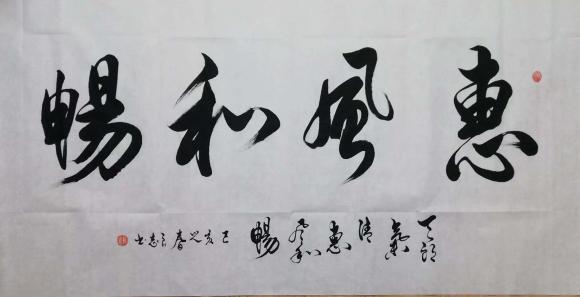 惠風和暢
天朗氣清惠風和暢
己亥之春志書